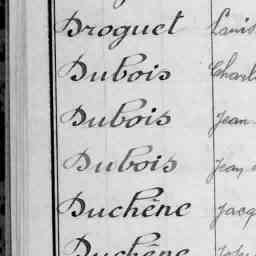 Droguet Louis
Dubois Charl
Dubois Jean
Dubois Jean
Duchêne Jacq
Duchêne